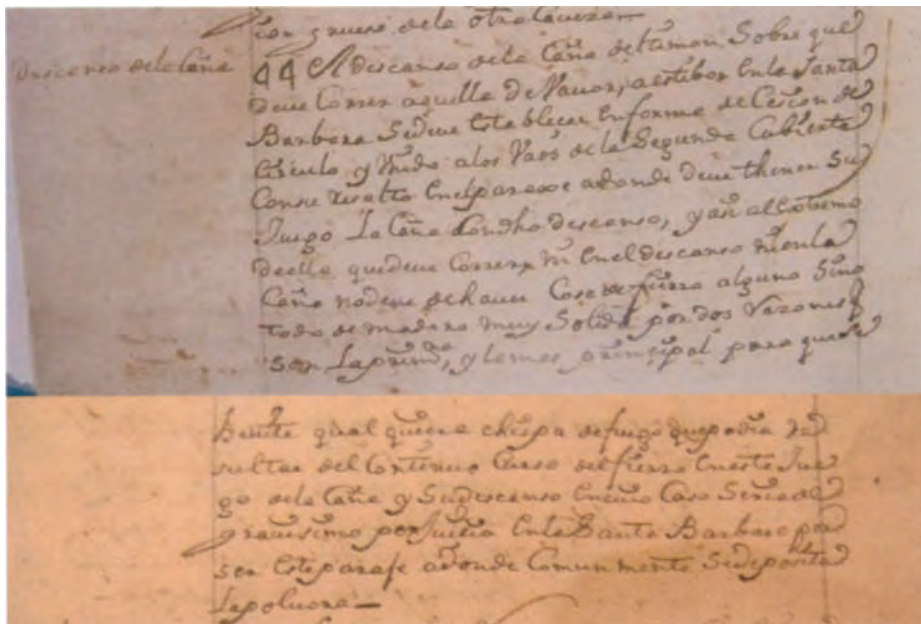 ion grueso dela otra Caveza—
Descanso dela Caña
44 El descanso dela Caña del timon Sobre que
deve Correr aquella de Vavor, a estibor En la Santa
Barbara Sedeve Establecer En forma de Cescion de
Circulo y Unido alos Vaos dela Segunda Cubierta
Con su resalto En el paraxe adonde deve thener Su
Juego La Caña Con dho descanso, y asi al Extremo
de ella que deve Correr ni En el descanso ni en la
Caña no deve de haver Cosa de fierro alguno Sino
todo de madera muy Solida por dos Razones
son La prim.ra, y la mas principal para que se
Evite qual quiera chispa de fuego que podia re
sultar del Continuo Curso del fierro En este Jue
go dela Caña y Su descanso En cuio Caso Seria de
gravisimo perjuicio En la Santa Barbara por
ser Este paraje adonde Comunmente Se deposita
La polvora—